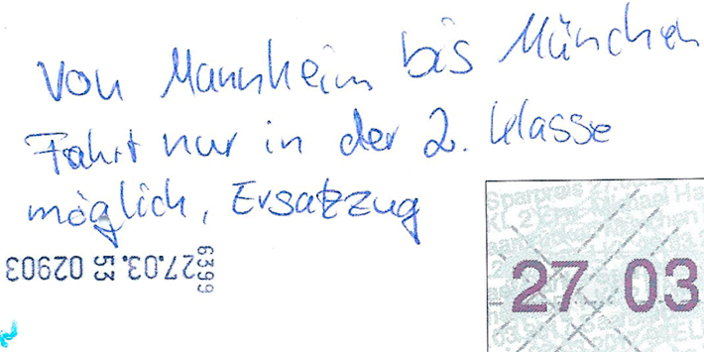 Von Mannheim bis München
Fahrt nur in der 2. Klasse
möglich, Ersatzzug
27.03. 53 02903
6399
27 03